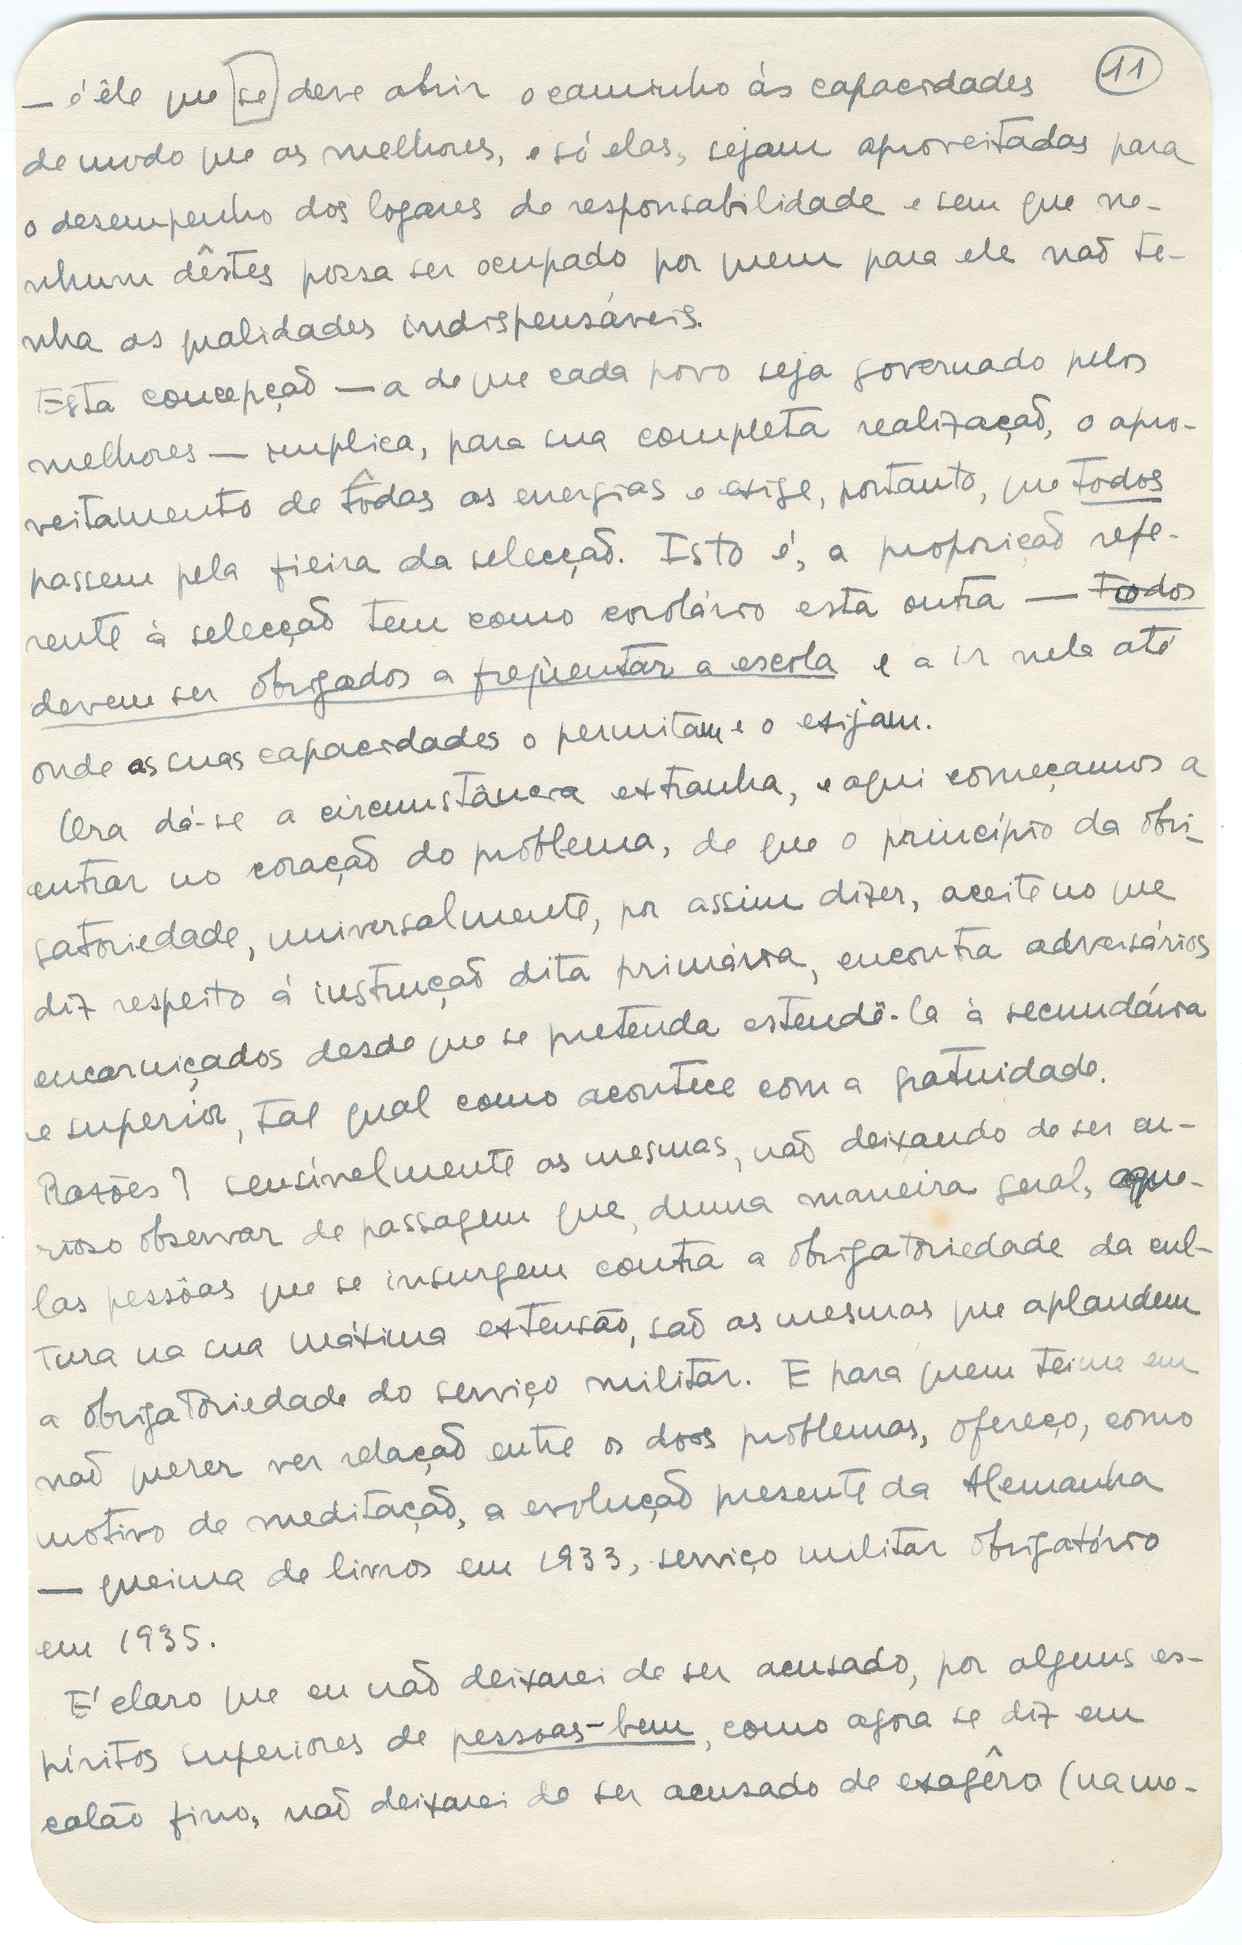 11
— é êle que se deve abrir o caminho ás capacidades
de modo que as melhores, e só elas, sejam aproveitadas para
o desempenho dos logares de responsabilidade e sem que ne-
nhum dêstes possa ser ocupado por quem para ele não te-
nha as qualidades indispensáveis.
Esta concepção — a de que cada povo seja governado pelos
melhores — implica, para sua completa realização, o apro-
veitamento de tôdas as energias e exige, portanto, que todos
passem pela fieira da selecção. Isto é, a proposição refe-
rente à selecção tem como corolário esta outra — todos
devem ser obrigados a freqüentar a escola e a ir nela até
onde as suas capacidades o permitam e o exijam.
Ora dá-se a circunstância extranha, e aqui começamos a
entrar no coração do problema, de que o princípio da obri-
gatoriedade, universalmente, por assim dizer, aceite no que
diz respeito á instrução dita primária, encontra adversários
encarniçados desde que se pretenda estendê-la à secundária
e superior, tal qual como acontece com a gratuidade.
Razões? sensívelmente as mesmas, não deixando de ser cu-
rioso observar de passagem que, duma maneira geral, aque-
las pessôas que se insurgem contra a obrigatoriedade da cul-
tura na sua máxima extensão, são as mesmas que aplaudem
a obrigatoriedade do serviço militar. E para quem teime em
não querer ver relação entre os dois problemas, ofereço, como
motivo de meditação, a evolução presente da Alemanha
— queima de livros em 1933, serviço militar obrigatório
em 1935.
E' claro que eu não deixarei de ser acusado, por alguns es-
píritos superiores de pessoas-bem, como agora se diz em
calão fino, não deixarei de ser acusado de exagêro (na me-